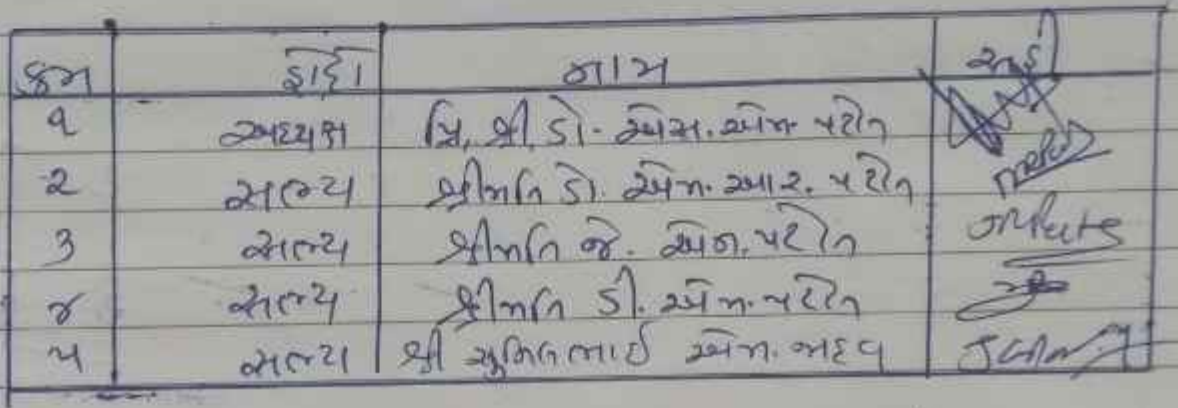 ક્રમ હોદ્દો નામ સહી
૧ અધ્યક્ષ પ્રિ. શ્રી ડો. એસ. એમ પટેલ
૨ સભ્ય શ્રીમતિ ડો. એમ. આર. પટેલ
૩ સભ્ય શ્રીમતિ જે. એન. પટેલ
૪ સભ્ય શ્રીમતિ ડી. એમ. પટેલ
૫ સભ્ય શ્રી સુનિલભાઈ એમ. જાદવ